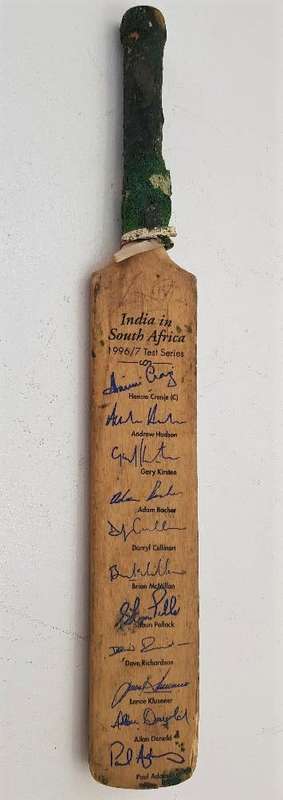 India in
South Africa
1996/7 Test Series
Hansie Cronje (C)
Andrew Hudson
Gary Kirsten
Adam Bacher
Darryl Cullinan
Brian McMillan
Shaun Pollock
Dave Richardson
Lance Klusener
Allan Donald
Paul Adams